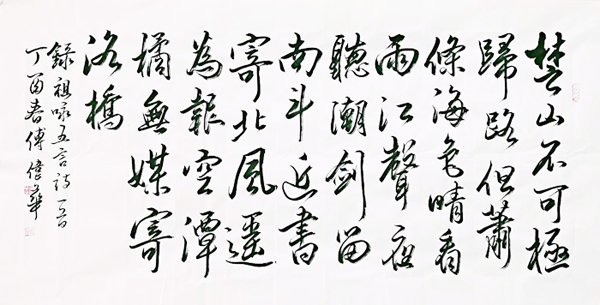 楚山不可極
歸路但蕭
條海色晴看
雨江聲夜
聽潮劍留
南斗近書
寄北風遥
為報空潭
橘無媒寄
洛橋
録祖咏五言詩一首
丁酉春傅偉華